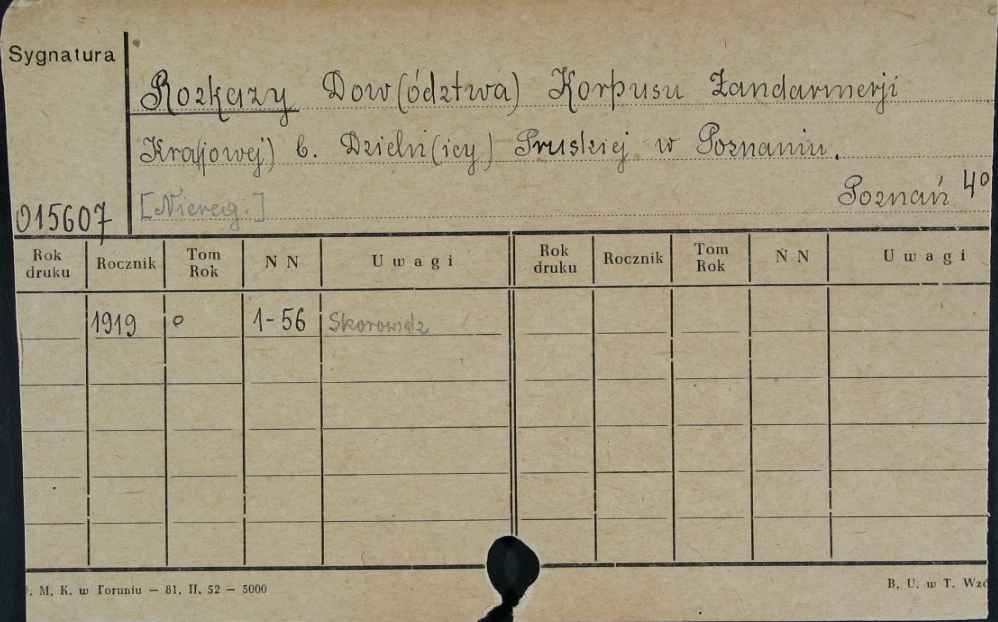 Sygnatura
Rozkazy Dow(ództwa) Korpusu Żandarmerji
Kra(jowej) b. Dzieln(icy) Pruskiej w Poznaniu.
Poznań 4º
015607 [Niereg.]
Rok druku Rocznik Tom Rok N N Uwagi Rok druku Rocznik Tom Rok N N Uwagi
1919 o 1-56 Skorowidz
. M. K. w Toruniu — 81. II. 52 — 5000
B. U. w T. Wzó